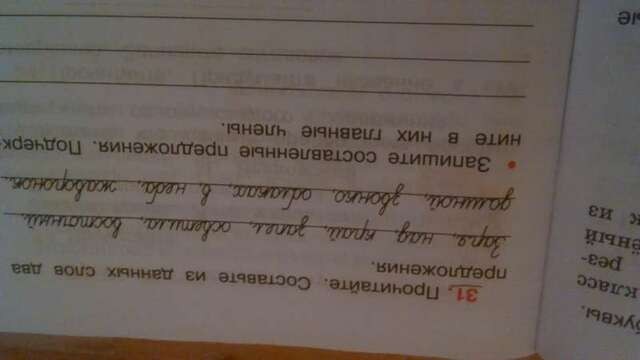 31. Прочитайте. Составьте из данных слов два
предложения.
Заря, над, край, запел, осветила, восточный,
долиной, звонко, облаках, в, небо, жаворонок.
• Запишите составленные предложения. Подчерк-
ните в них главные члены.
буквы.
класс
рез-
к из
ые